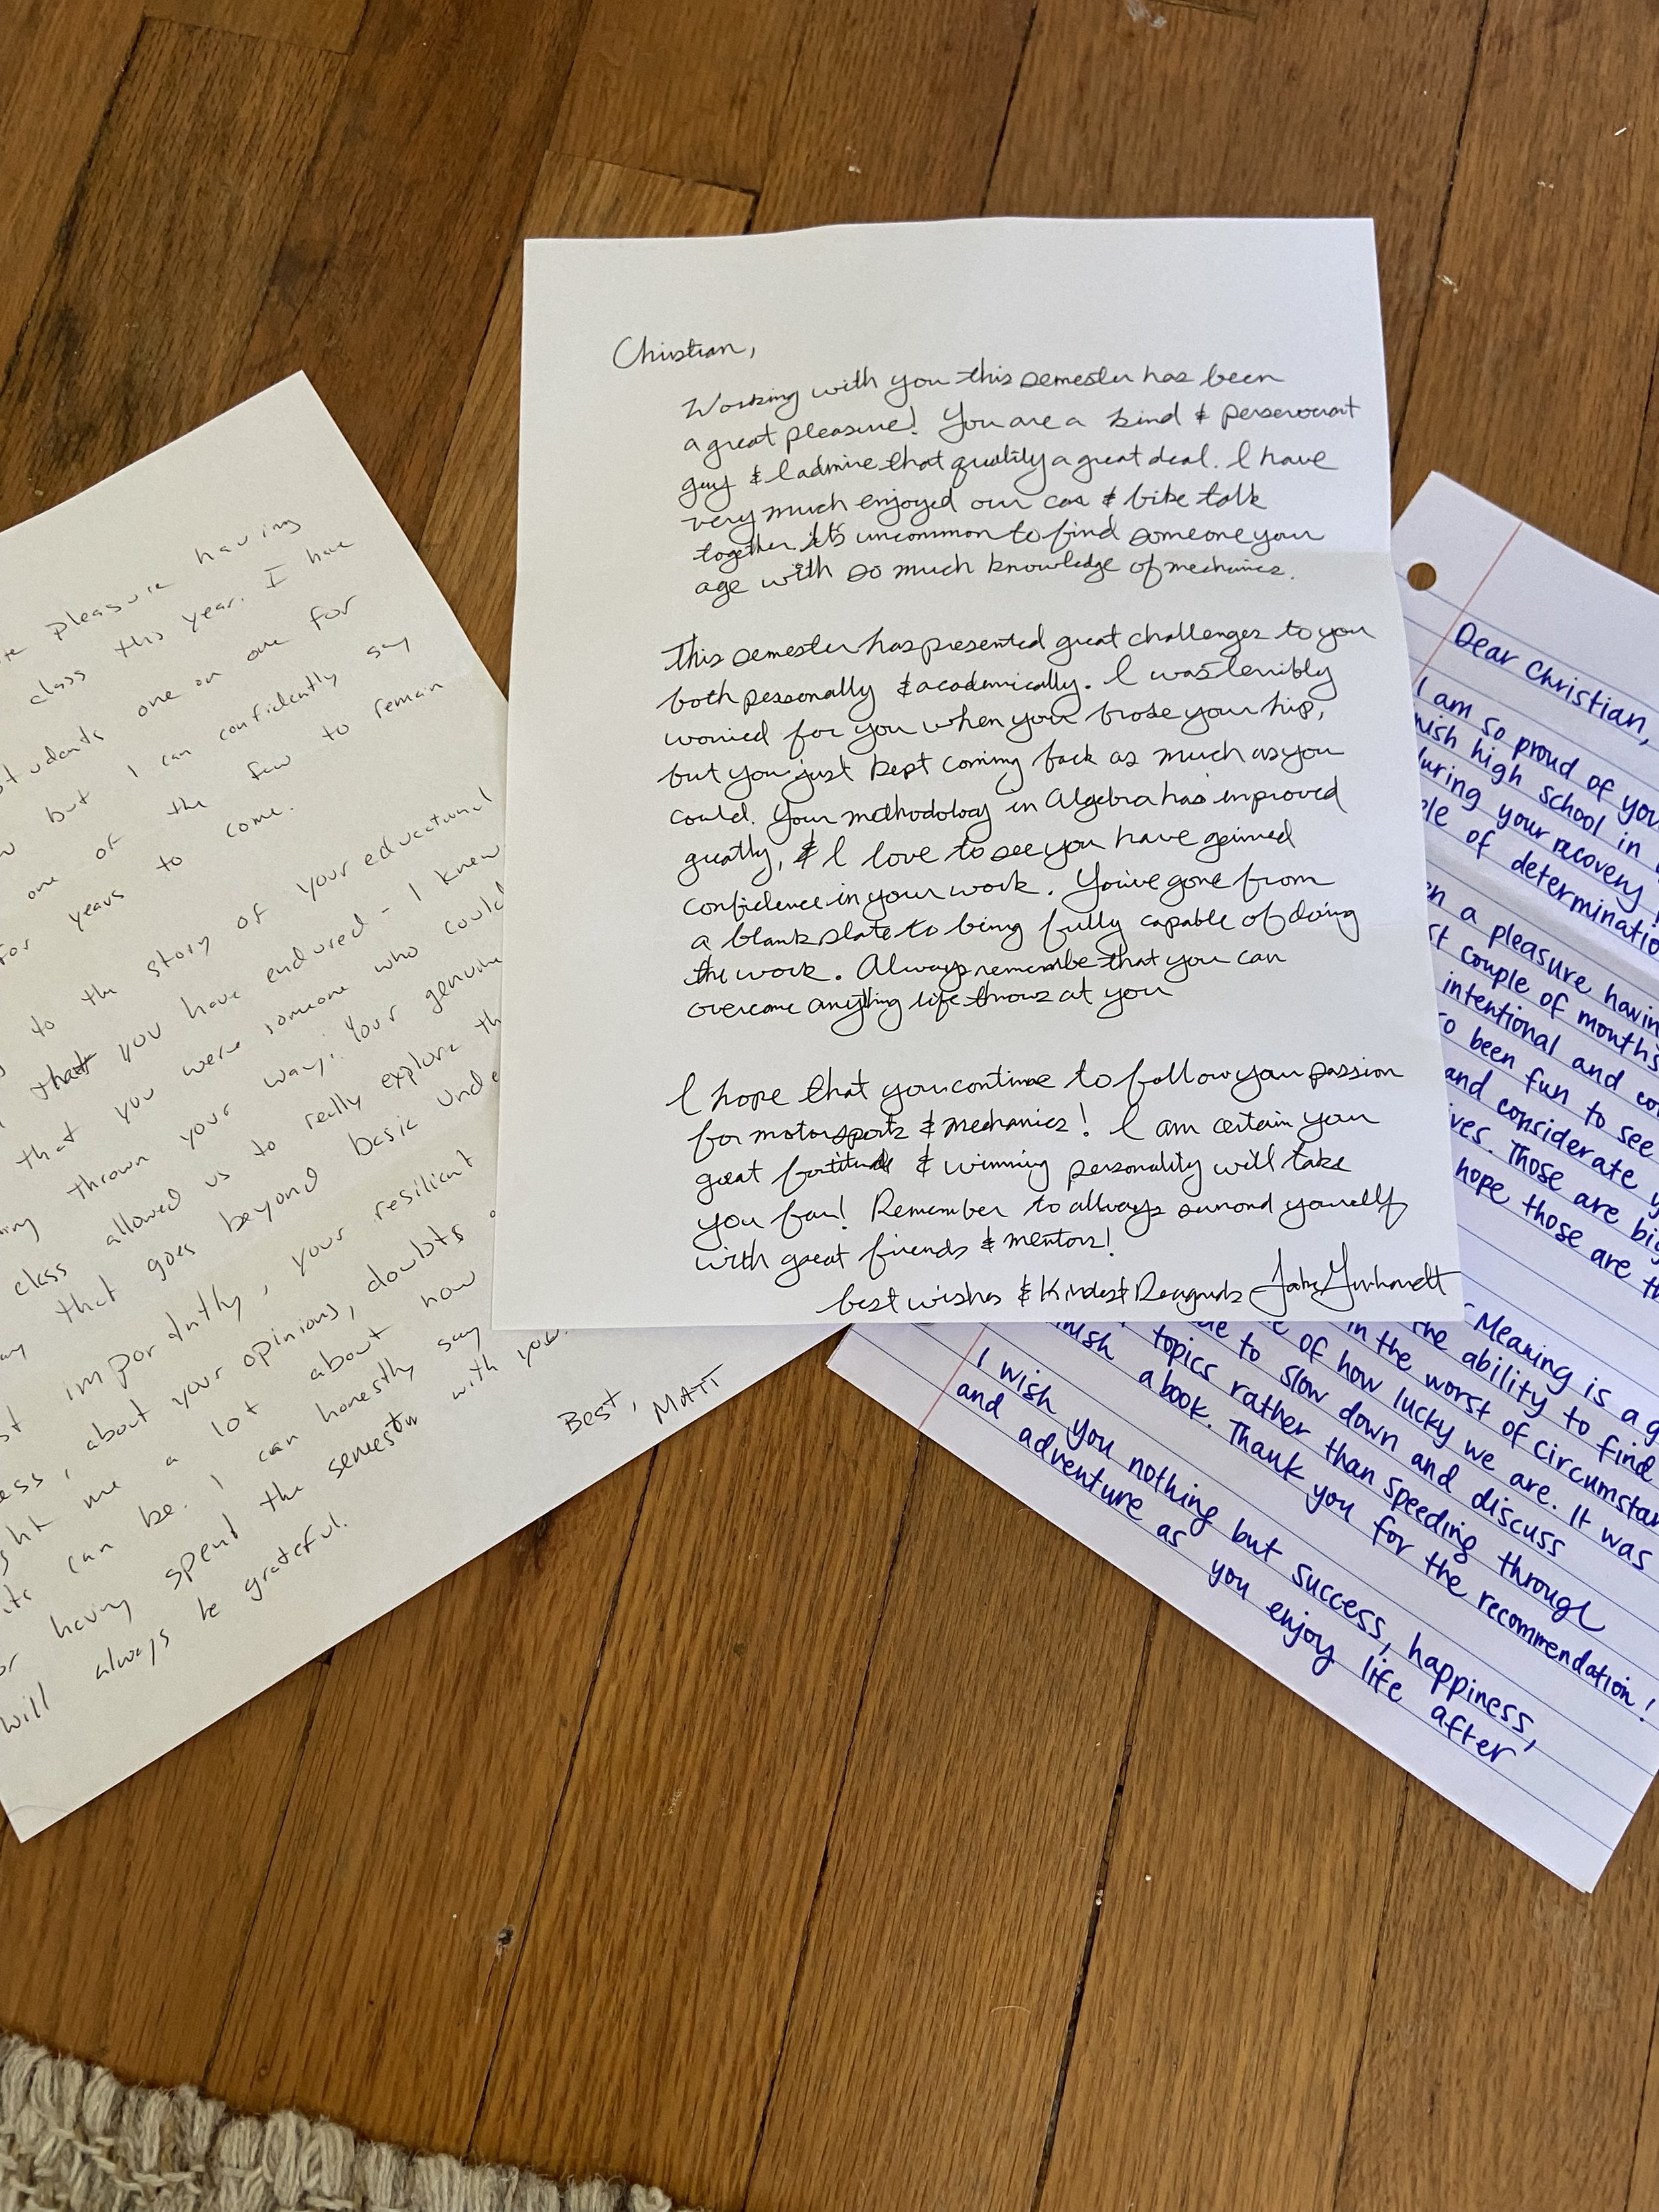 Christian,
Working with you this semester has been
a great pleasure! You are a kind & perserverant
guy & I admire that quality a great deal. I have
very much enjoyed our car & bike talk
together. It's uncommon to find someone your
age with so much knowledge of mechanics.
This semester has presented great challenges to you
both personally & academically. I was terribly
worried for you when you broke your hip,
but you just kept coming back as much as you
could. Your methodology in Algebra has improved
greatly, & I love to see you have gained
confidence in your work. You've gone from
a blank slate to being fully capable of doing
the work. Always remember that you can
overcome anything life throws at you
I hope that you continue to follow your passion
for motorsports & mechanics! I am certain your
great fortitude & winning personality will take
you far! Remember to allways suround yourself
with great friends & mentors!
best wishes & Kindest Reagards
pleasure having
class this year. I have
students one on one for
but I can confidently say
one of the few to remain
for years to come.
to the story of your educational
that you have endured - I knew
that you were someone who could
thrown your way. Your genuine
class allowed us to really explore th
that goes beyond basic unde
importantly, your resilient
about your opinions, doubts
me a lot about how
can be. I can honestly say
having spend the semester with you.
will always be grateful.
Best,
MATT
Dear Christian,
I am so proud of you
nish high school in
during your recovery!
ple of determinatio
en a pleasure havin
st couple of months
intentional and co
so been fun to see
and considerate y
ives. Those are big
hope those are th
Meaning is a g
the ability to find
in the worst of circumstan
of how lucky we are. It was
ue to slow down and discuss
topics rather than speeding through
nish a book. Thank you for the recommendation!
I wish you nothing but success, happiness,
and adventure as you enjoy life after